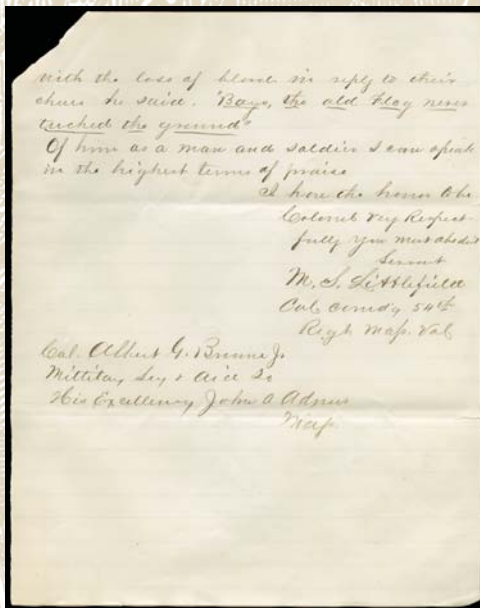 with the loss of blood in reply to their
cheers he said. "Boys, the old Flag never
touched the ground"
Of him as a man and soldier I can speak
in the highest terms of praise
I have the honor to be
Colonel Very Respect-
fully Your most obedient
Servant
M. S. Littlefield
Col comd'g 54th
Regt Mass. Vol
Col. Albert G. Browne Jr
Military Secy & Aid to
His Excellency John A Andrew
Mass.